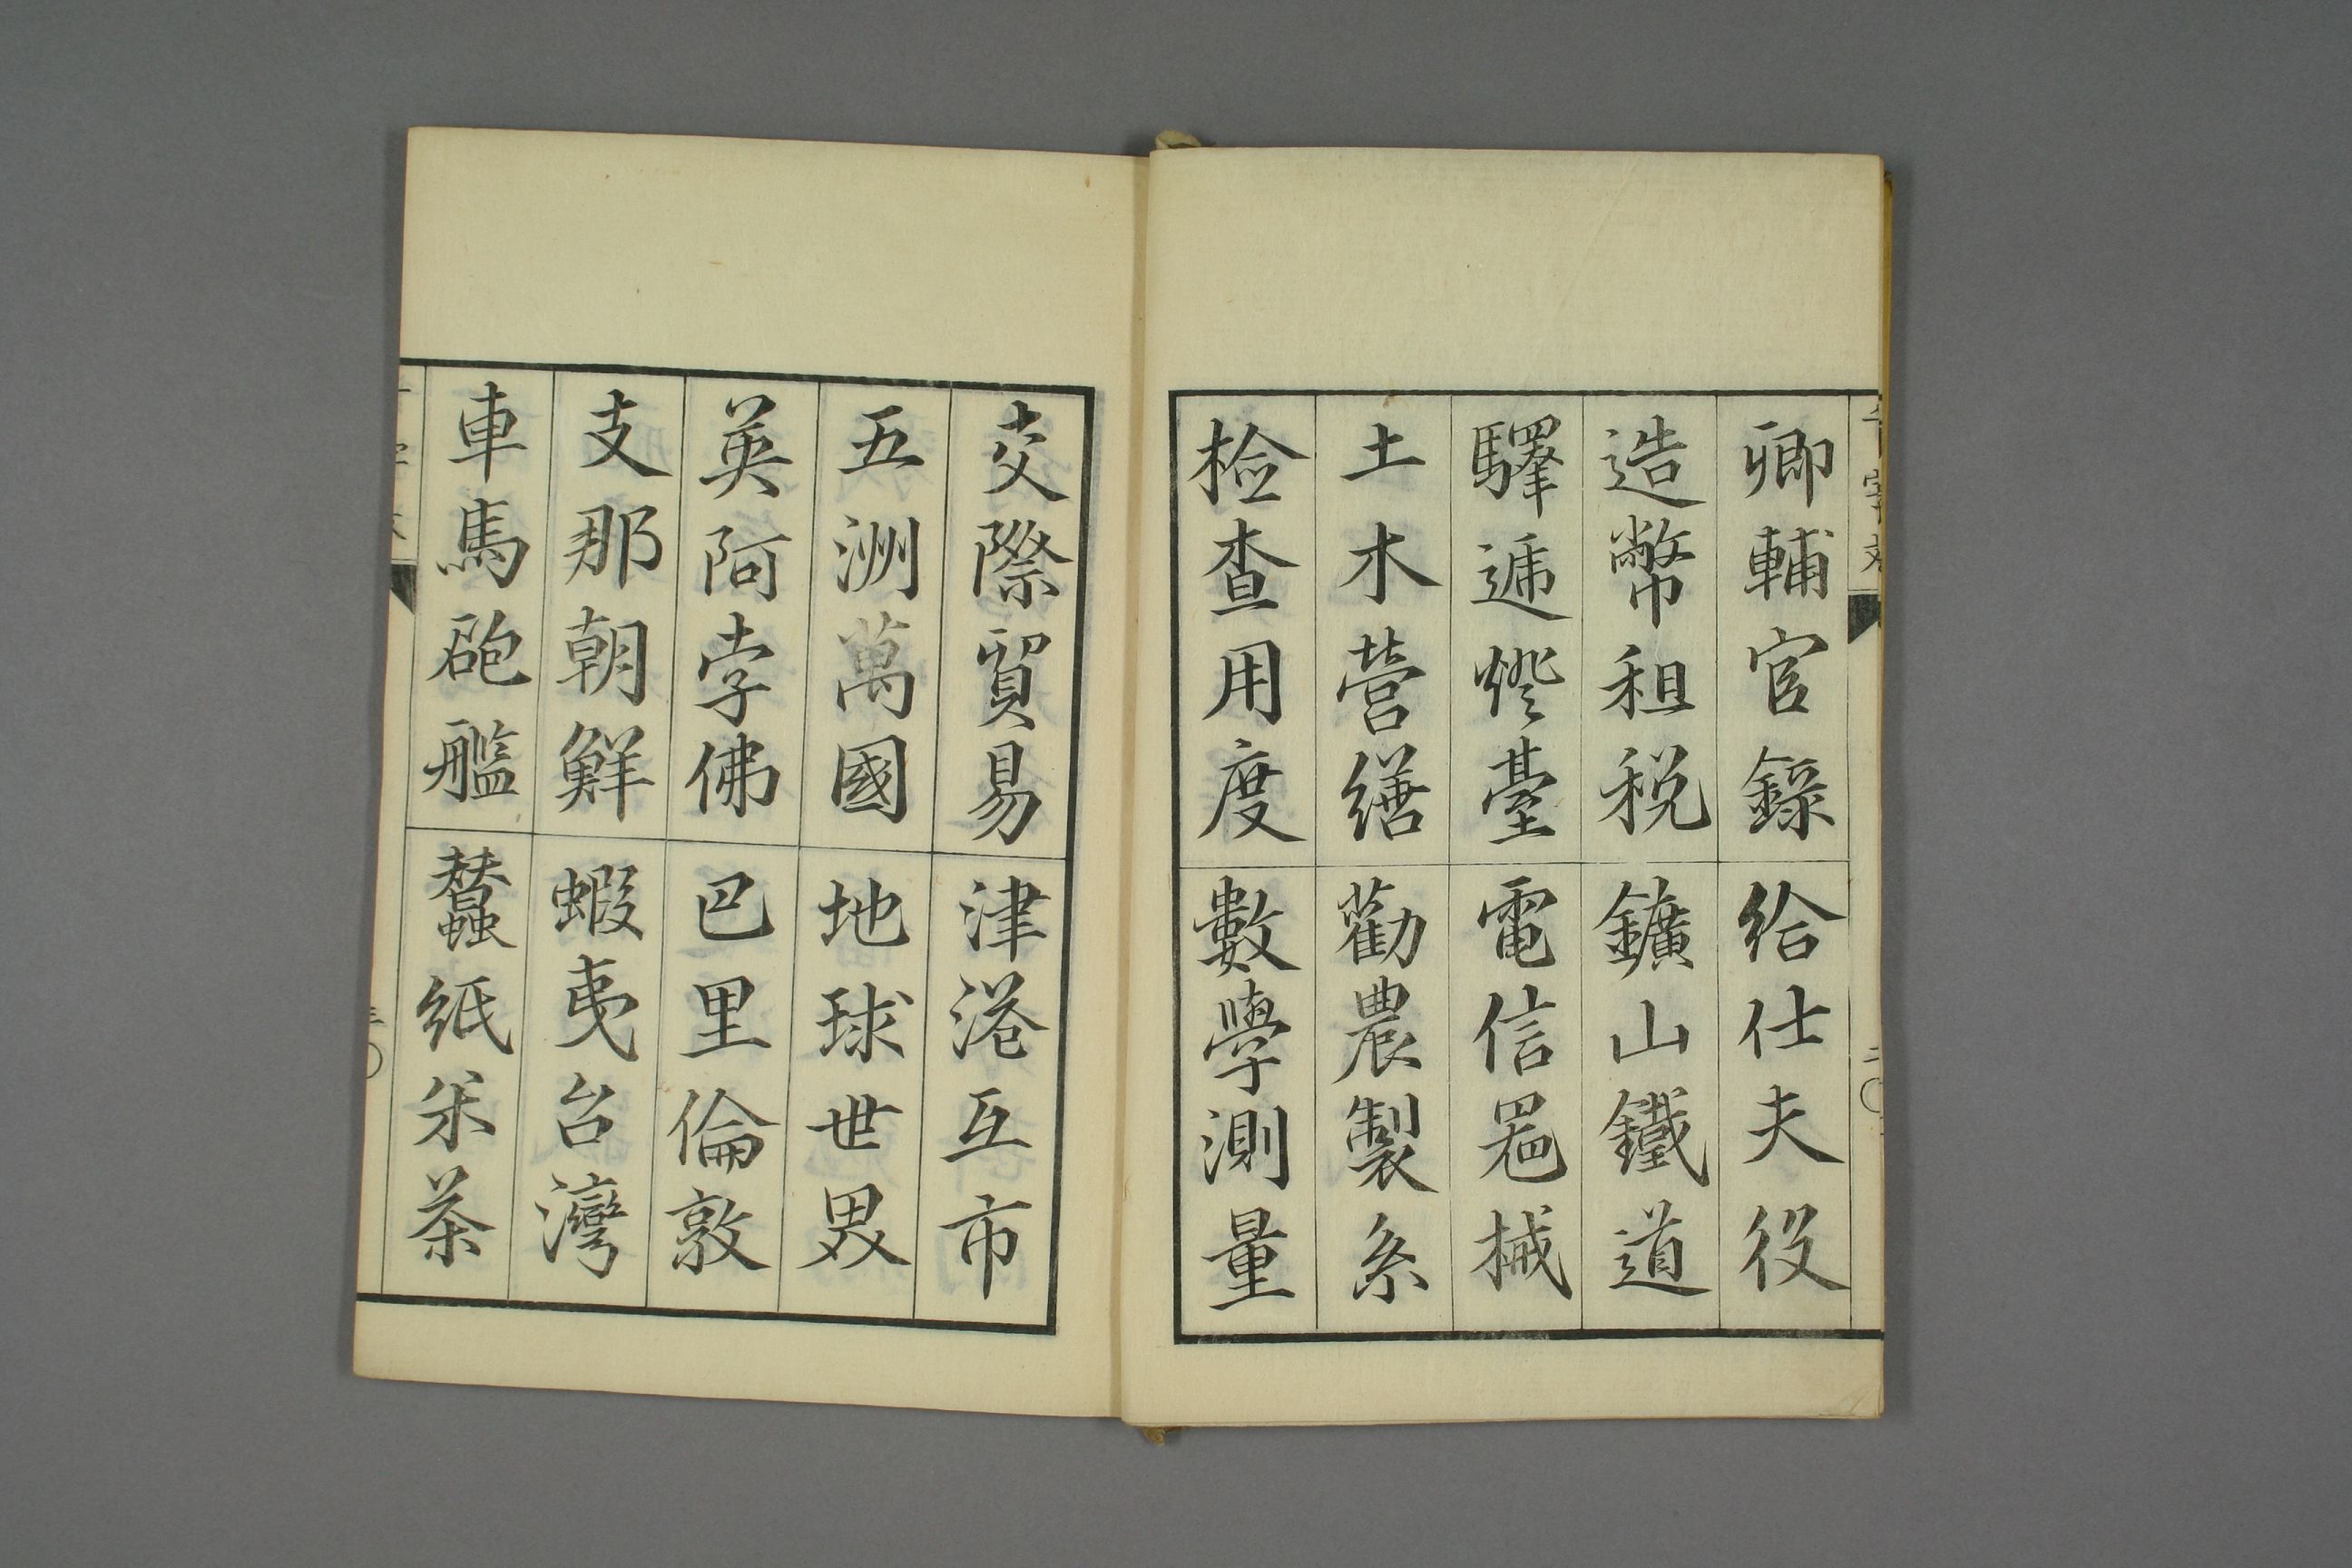 千字文
卿輔官錄
給仕夫役
造幣租税
鑛山鐵道
驛遞燈臺
電信器械
土木營繕
勸農製糸
檢查用度
數學測量
二
交際貿易
津港互市
五洲萬國
地球世界
英阿孛佛
巴里倫敦
支那朝鮮
蝦夷台灣
車馬砲艦
蠶紙米茶